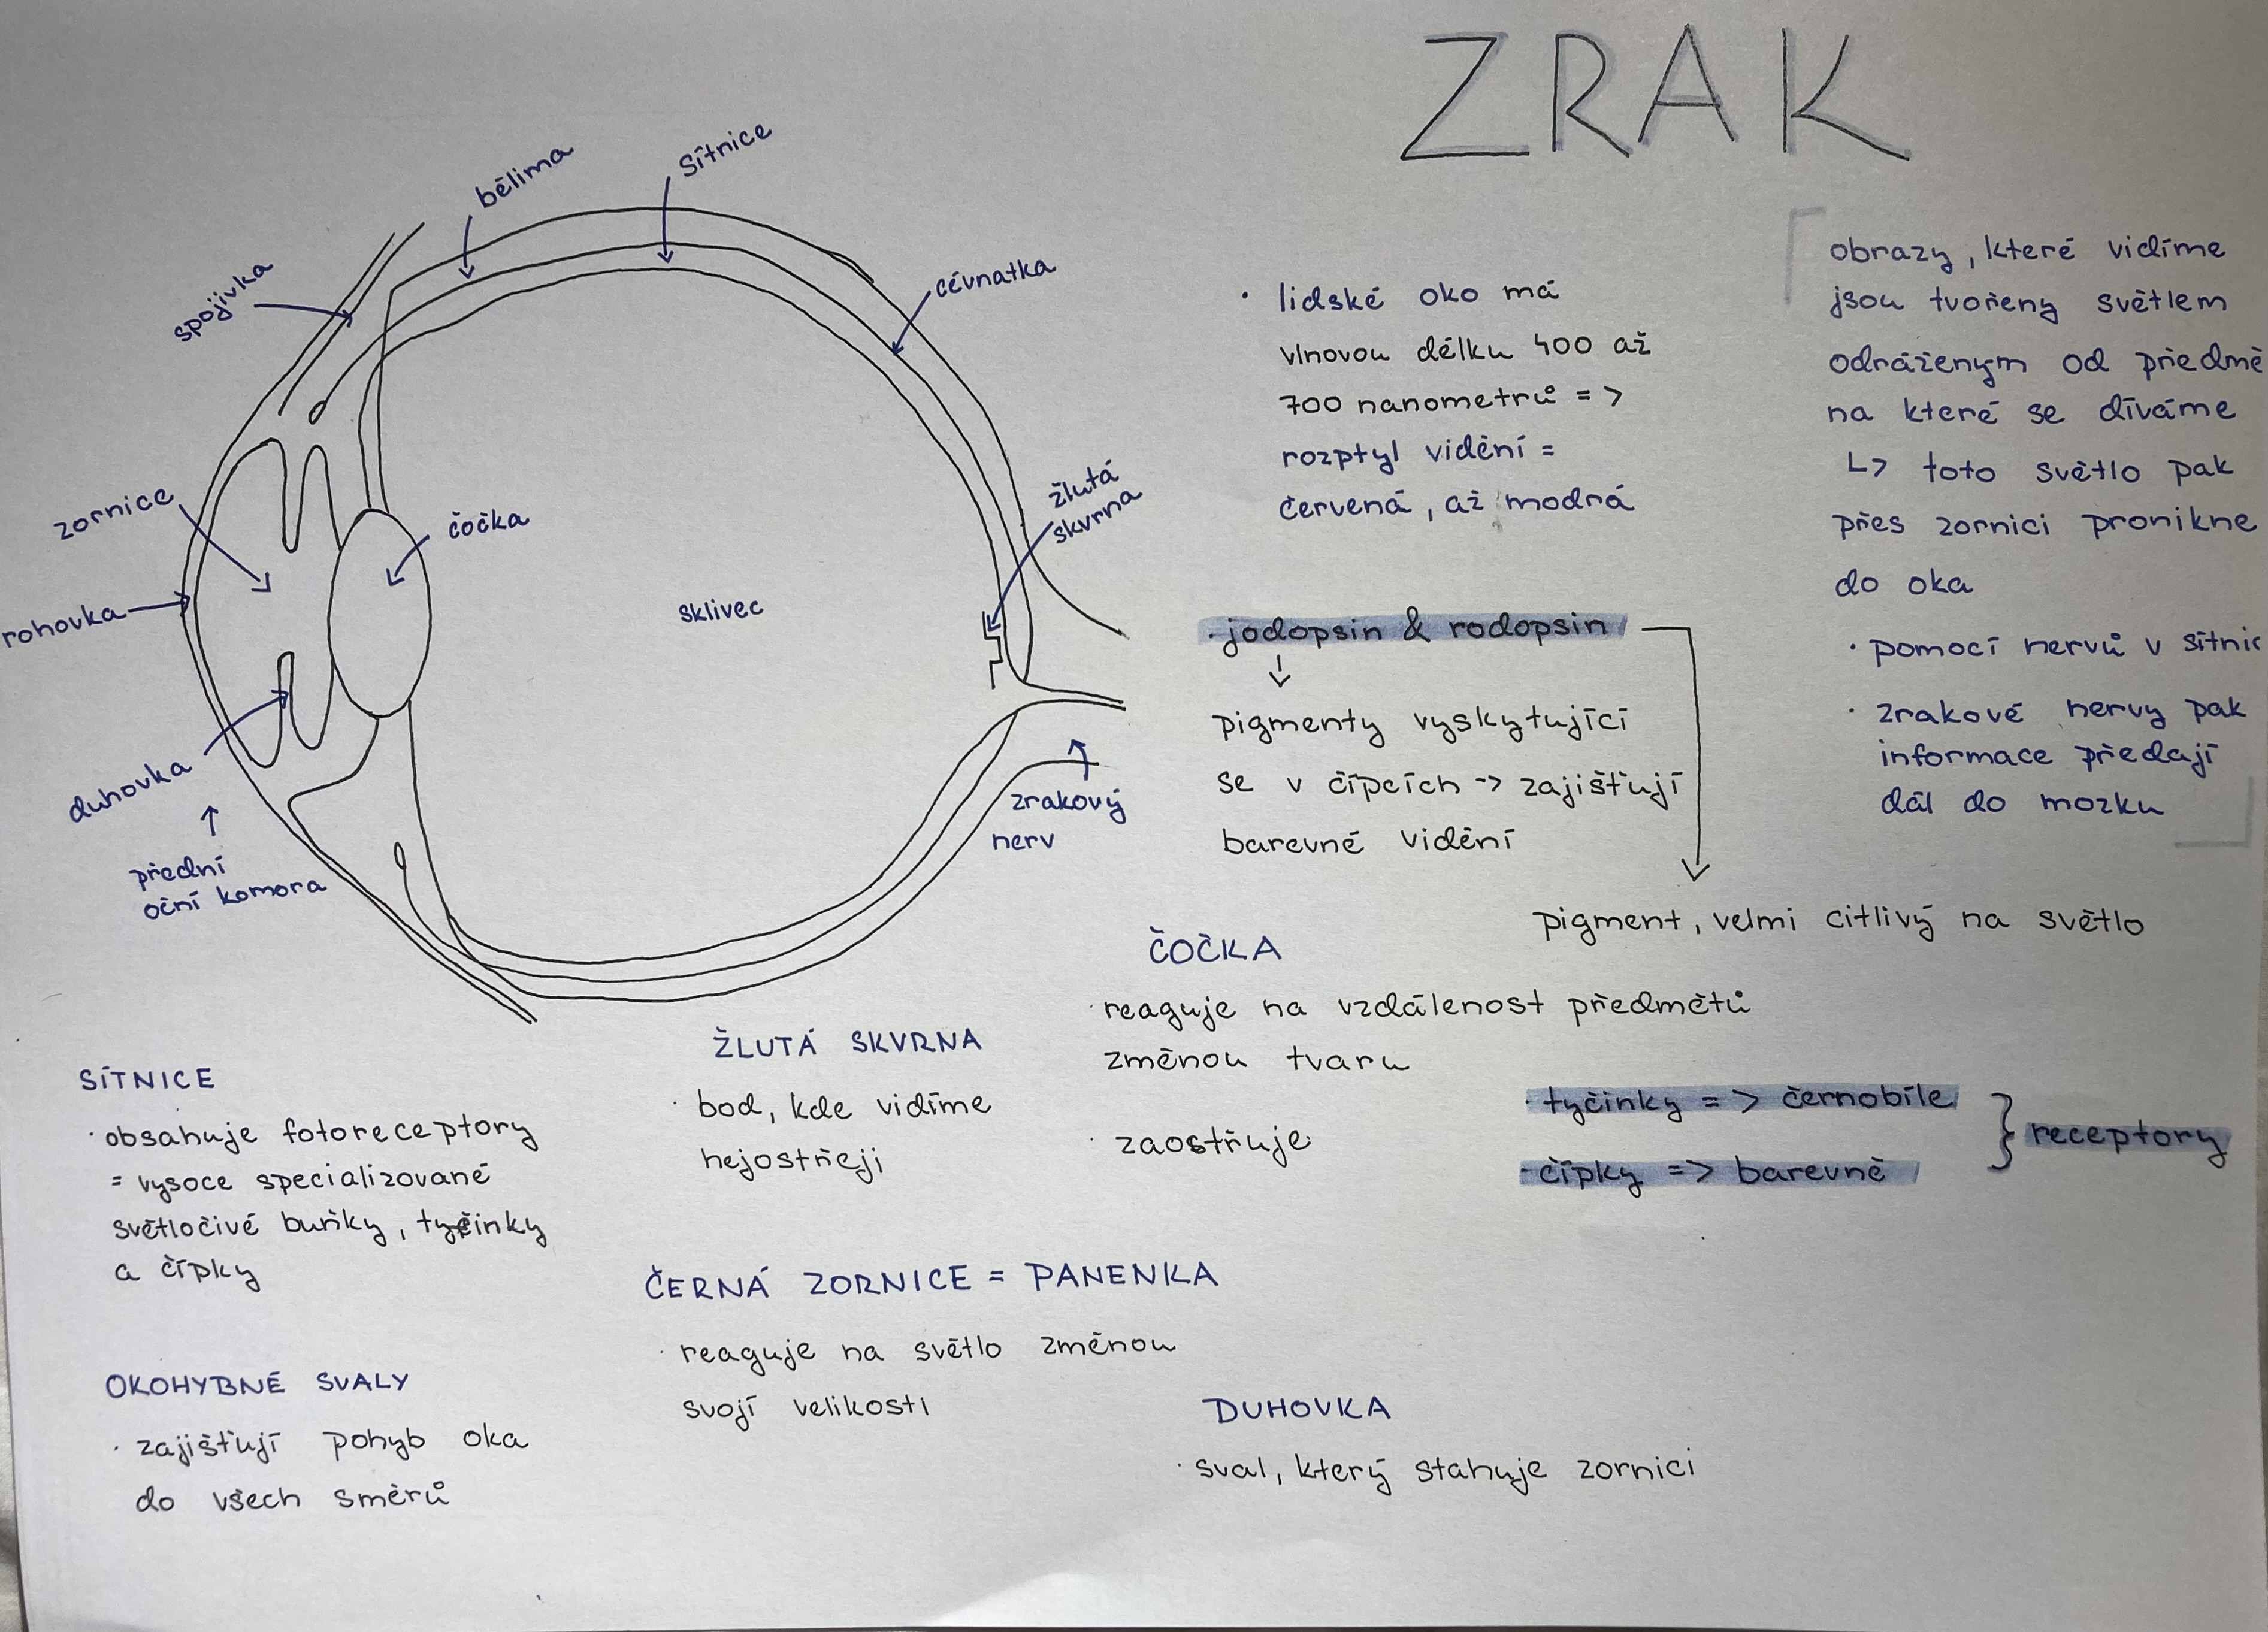 ZRAK
bělima
sítnice
spojivka
cévnatka
zornice
čočka
žlutá
skvrna
rohovka
sklivec
duhovka
zrakový
nerv
přední
oční komora
· lidské oko má
vlnovou délku 400 až
700 nanometrů =>
rozptyl vidění =
červená, až modrá
obrazy, které vidíme
jsou tvořeny světlem
odráženým od předmě
na které se díváme
↳ toto světlo pak
přes zornici pronikne
do oka
· pomocí nervů v sítnic
· zrakové nervy pak
informace předají
dál do mozku
· jodopsin & rodopsin
↓
pigmenty vyskytující
se v čípcích -> zajišťují
barevné vidění
pigment, velmi citlivý na světlo
ČOČKA
· reaguje na vzdálenost předmětů
změnou tvaru
· zaostřuje
ŽLUTÁ SKVRNA
· bod, kde vidíme
nejostřeji
SÍTNICE
· obsahuje fotoreceptory
= vysoce specializované
světločivé buňky, tyčinky
a čípky
· tyčinky => černobíle
· čípky => barevně
} receptory
ČERNÁ ZORNICE = PANENKA
· reaguje na světlo změnou
svojí velikosti
OKOHYBNÉ SVALY
· zajišťují pohyb oka
do všech směrů
DUHOVKA
· sval, který stahuje zornici